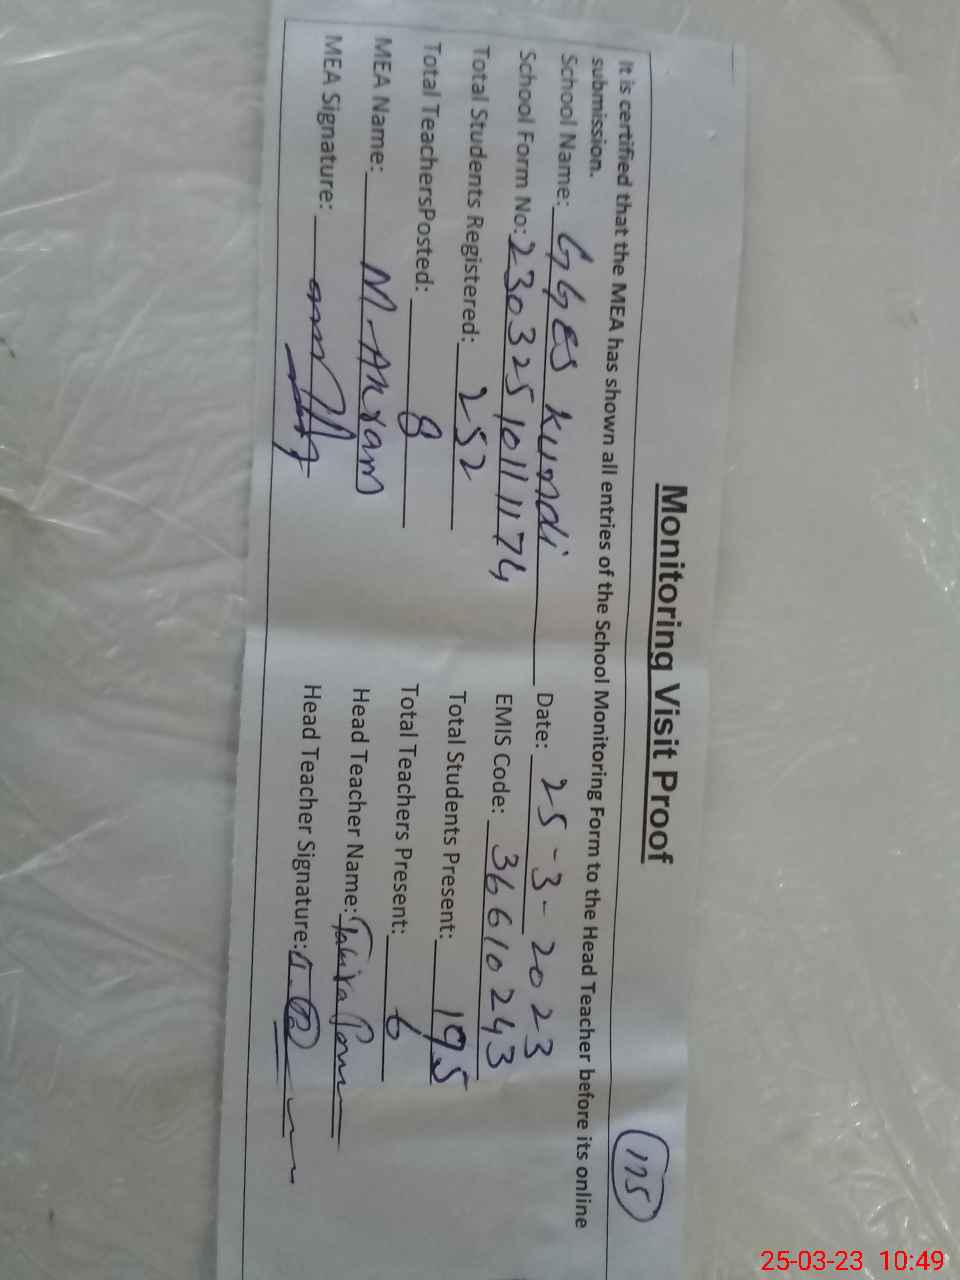 Monitoring Visit Proof
175
It is certified that the MEA has shown all entries of the School Monitoring Form to the Head Teacher before its online
submission.
School Name: GGES Kundi Date: 25-3-2023
School Form No: 23032510111174 EMIS Code: 36610243
Total Students Registered: 252 Total Students Present: 195
Total TeachersPosted: 8 Total Teachers Present: 6
MEA Name: M-Akram Head Teacher Name: Tahira
MEA Signature: Head Teacher Signature:
25-03-23 10:49